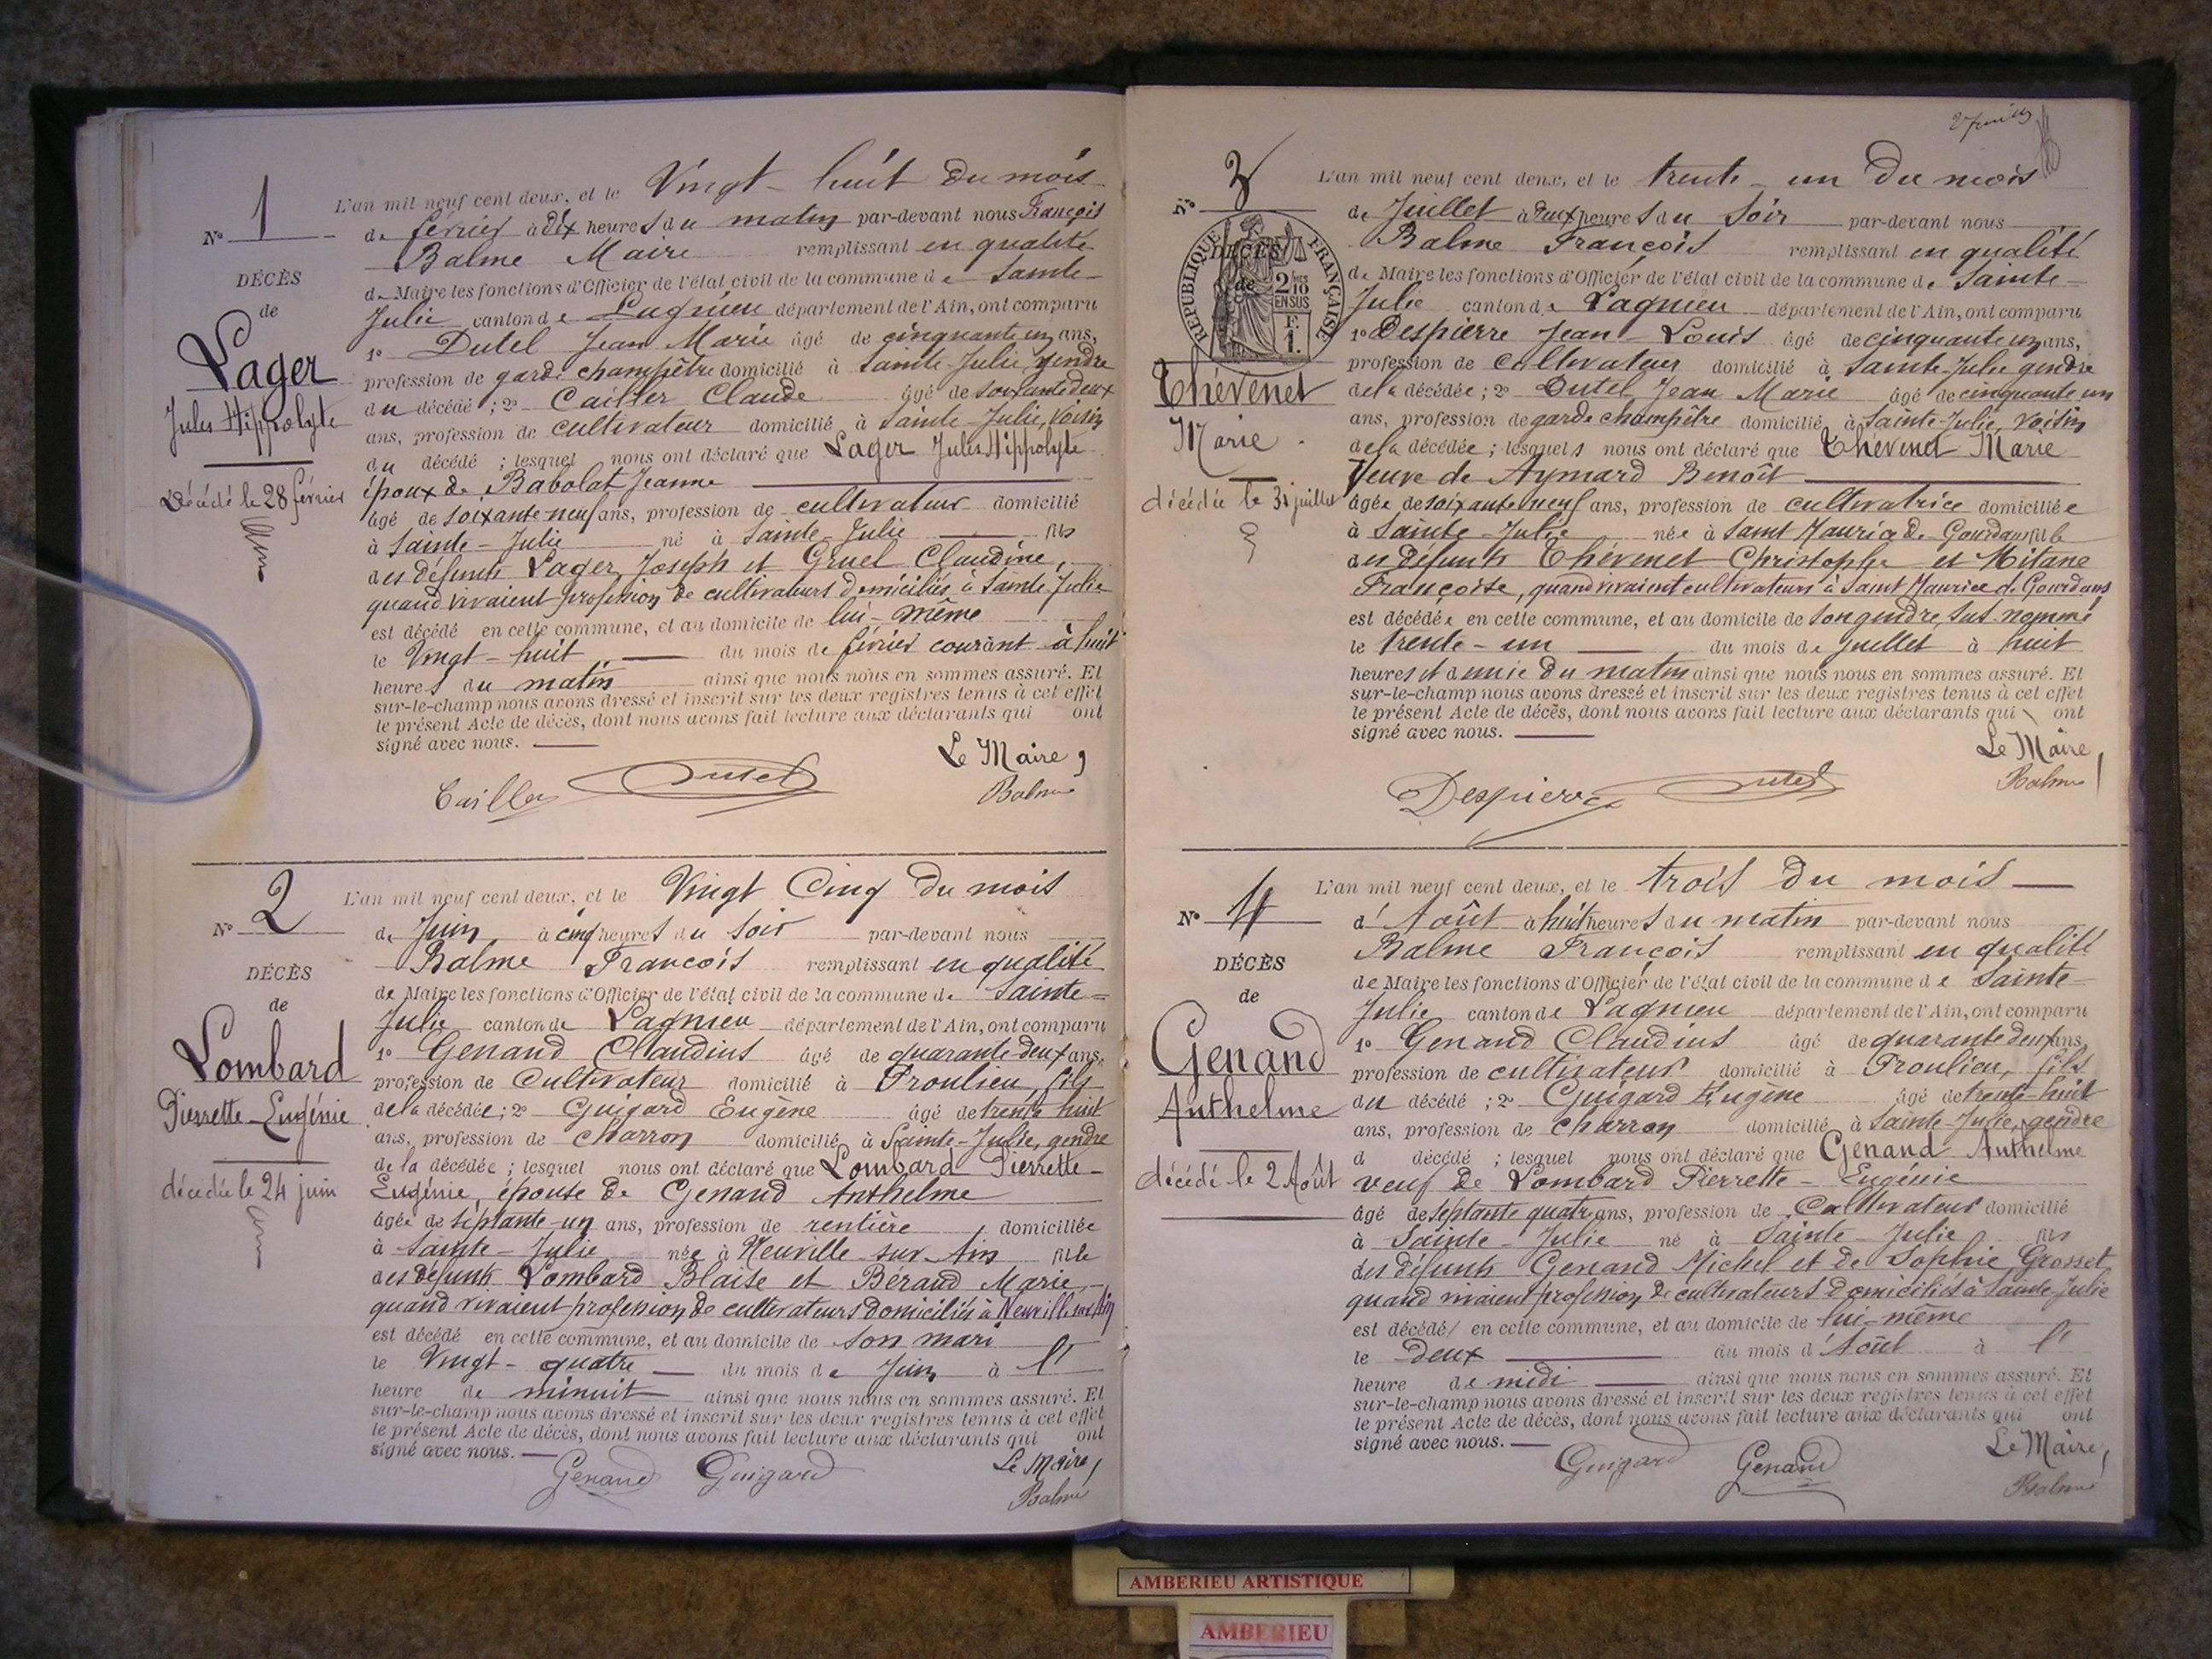 L'an mil neuf cent deux, et le Vingt-huit du mois
de février à dix heures du matin par-devant nous François
Balme Maire remplissant en qualité
de Maire les fonctions d'Officier de l'état civil de la commune de Sainte-
Julie canton de Lagnieu département de l'Ain, ont comparu
1º Dutel Jean Marie âgé de cinquante un ans,
profession de garde champêtre domicilié à Sainte Julie, gendre
du décédé ; 2º Cailler Claude âgé de soixante deux
ans, profession de cultivateur domicilié à Sainte-Julie, voisin
du décédé ; lesquel nous ont déclaré que Lager Jules Hippolyte
époux de Babolat Jeanne
âgé de soixante neuf ans, profession de cultivateur domicilié
à Sainte-Julie né à Sainte-Julie fils
des défunts Lager Joseph et Gruel Claudine,
quand vivaient profession de cultivateurs domiciliés à Sainte Julie
est décédé en cette commune, et au domicile de lui-même
le Vingt-huit du mois de février courant à huit
heures du matin ainsi que nous nous en sommes assuré. Et
sur-le-champ nous avons dressé et inscrit sur les deux registres tenus à cet effet
le présent Acte de décès, dont nous avons fait lecture aux déclarants qui ont
signé avec nous.
Le Maire,
Cailler Dutel Balme
Nº 1
DÉCÈS
de
Lager
Jules Hippolyte
Décédé le 28 février
L'an mil neuf cent deux, et le Vingt Cinq du mois
de Juin à cinq heures du soir par-devant nous
Balme François remplissant en qualité
de Maire les fonctions d'Officier de l'état civil de la commune de Sainte-
Julie canton de Lagnieu département de l'Ain, ont comparu
1º Genand Claudius âgé de quarante-deux ans,
profession de Cultivateur domicilié à Proulieu, fils
de la décédée ; 2º Guigard Eugène âgé de trente huit
ans, profession de charron domicilié à Sainte-Julie, gendre
de la décédée ; lesquel nous ont déclaré que Lombard Pierrette-
Eugénie, épouse de Genand Anthelme
âgée de séptante-un ans, profession de rentière, domiciliée
à Sainte-Julie née à Neuville sur Ain fille
des défunts Lombard Blaise et Béraud Marie,
quand vivaient profession de cultivateurs domiciliés à Neuville sur Ain
est décédé en cette commune, et au domicile de son mari
le Vingt-quatre du mois de Juin à l'
heure de minuit ainsi que nous nous en sommes assuré. Et
sur-le-champ nous avons dressé et inscrit sur les deux registres tenus à cet effet
le présent Acte de décès, dont nous avons fait lecture aux déclarants qui ont
signé avec nous.
Le Maire,
Genand Guigard Balme
Nº 2
DÉCÈS
de
Lombard
Pierrette-Eugénie
décédée le 24 juin
L'an mil neuf cent deux, et le trente-un du mois
de Juillet à deux heures du soir par-devant nous
Balme François remplissant en qualité
de Maire les fonctions d'Officier de l'état civil de la commune de Sainte-
Julie canton de Lagnieu département de l'Ain, ont comparu
1º Despierre Jean-Louis âgé de cinquante un ans,
profession de cultivateur domicilié à Sainte-Julie gendre
de la décédée ; 2º Dutel Jean Marie âgé de cinquante un
ans, profession de garde champêtre domicilié à Sainte-Julie, voisin
de la décédée ; lesquels nous ont déclaré que Thévenet Marie
Veuve de Aymard Benoît
âgée de soixante neuf ans, profession de cultivatrice domiciliée
à Sainte-Julie née à Saint Maurice de Gourdans fille
des défunts Thévenet Christophe et Mitane
Françoise, quand vivaient cultivateurs à Saint Maurice de Gourdans
est décédée en cette commune, et au domicile de son gendre sus-nommé
le trente-un du mois de juillet à huit
heures et demie du matin ainsi que nous nous en sommes assuré. Et
sur-le-champ nous avons dressé et inscrit sur les deux registres tenus à cet effet
le présent Acte de décès, dont nous avons fait lecture aux déclarants qui ont
signé avec nous.
Le Maire,
Despierre Dutel Balme
Nº 3
RÉPUBLIQUE FRANÇAISE
2/10 EN SUS
F. 1.
DÉCÈS
de
Thévenet
Marie
décédée le 31 juillet
L'an mil neuf cent deux, et le trois du mois
d'Août à huit heures du matin par-devant nous
Balme François remplissant en qualité
de Maire les fonctions d'Officier de l'état civil de la commune de Sainte-
Julie canton de Lagnieu département de l'Ain, ont comparu
1º Genand Claudius âgé de quarante deux ans,
profession de cultivateur domicilié à Proulieu, fils
du décédé ; 2º Guigard Eugène âgé de trente-huit
ans, profession de charron domicilié à Sainte-Julie, gendre
d décédé ; lesquel nous ont déclaré que Genand Anthelme
veuf de Lombard Pierrette-Eugénie
âgé de séptante quatre ans, profession de Cultivateur domicilié
à Sainte-Julie né à Sainte-Julie fils
des défunts Genand Michel et de Sophie Grosset
quand vivaient profession de cultivateurs domiciliés à Sainte Julie
est décédé en cette commune, et au domicile de lui-même
le deux du mois d'Août à l'
heure de midi ainsi que nous nous en sommes assuré. Et
sur-le-champ nous avons dressé et inscrit sur les deux registres tenus à cet effet
le présent Acte de décès, dont nous avons fait lecture aux déclarants qui ont
signé avec nous.
Le Maire,
Guigard Genand Balme
Nº 4
DÉCÈS
de
Genand
Anthelme
décédé le 2 Août
AMBERIEU ARTISTIQUE
AMBERIEU